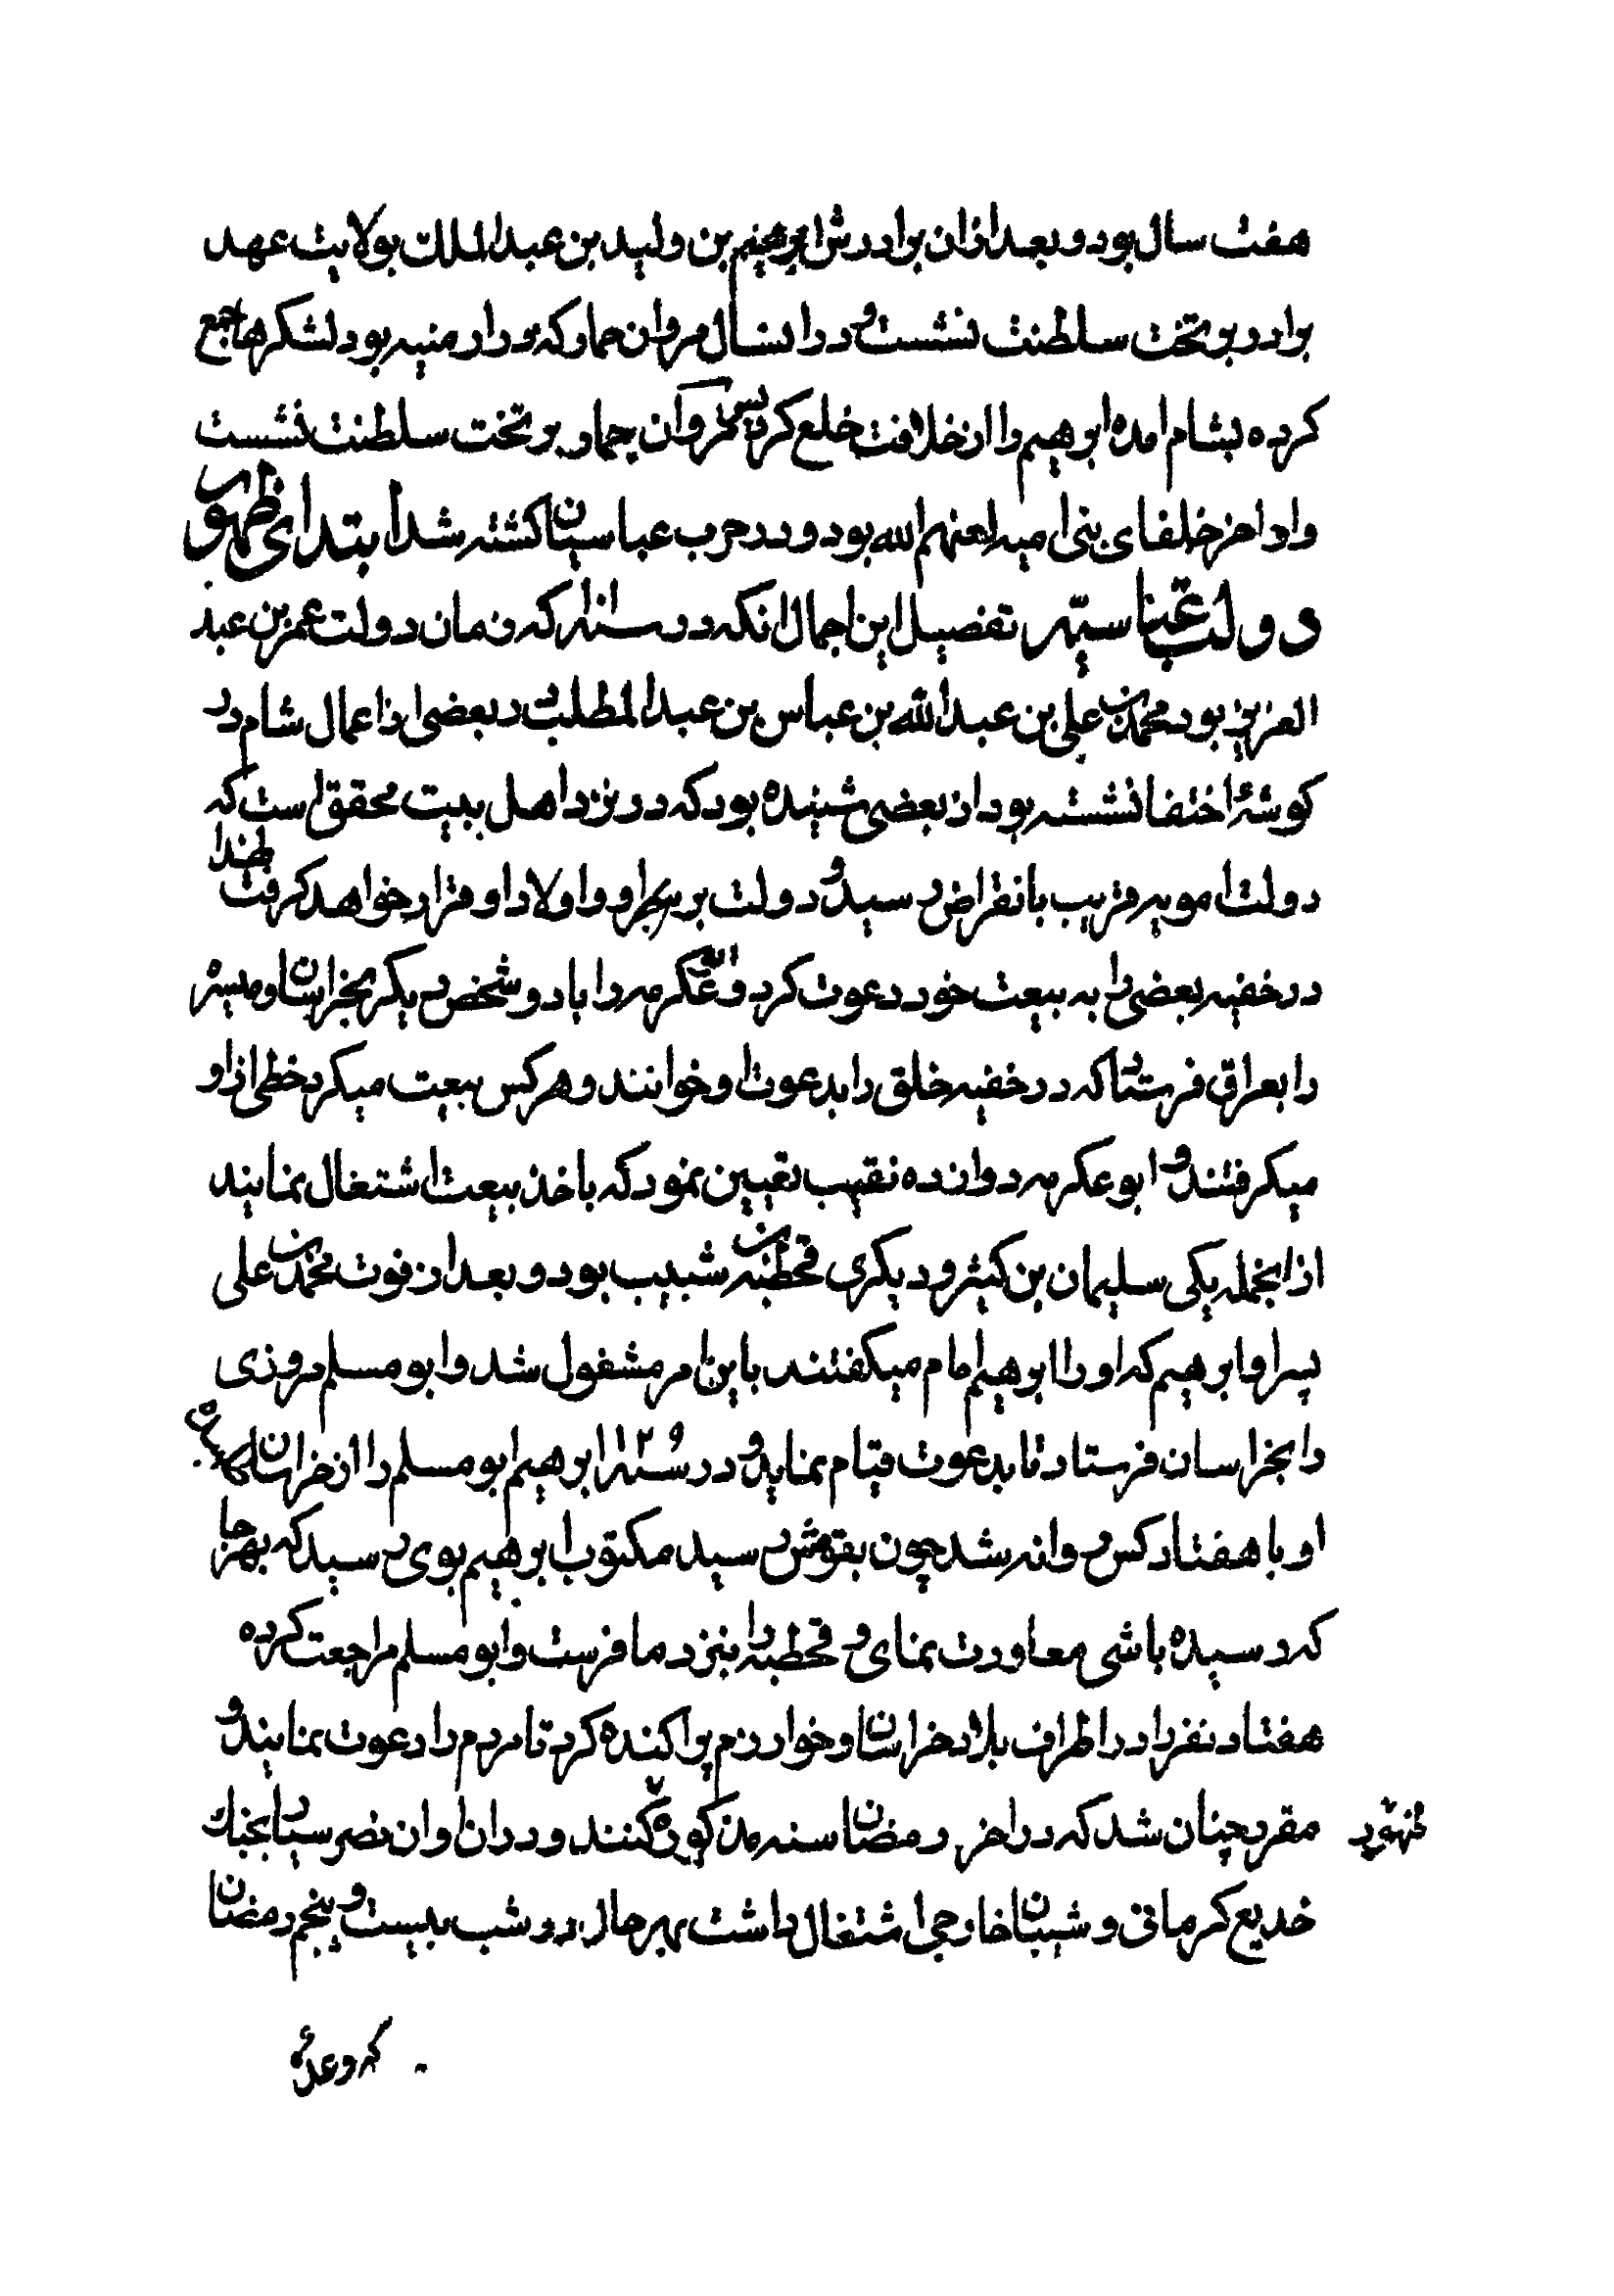 هفت سال بود و بعد ازان برادرش ابرهیم بن ولید بن عبد الملک بولایت عهد
برادر بر تخت سلطنت نشست و در انسال مروان حمار که در ارمنیه بود لشکرها جمع
کرده بشام امده ابرهیم را از خلافت خلع کرد پس مروان حمار بر تخت سلطنت نشست
و او اخر خلفای بنی امیه لعنهم الله بود و در حرب عباسیان کشته شد ابتدای ظهور
دولت عباسیه تفصیل این اجمال انکه در سنه که زمان دولت عمر بن عبد
العزیز بود محمد بن علی بن عبد الله بن عباس بن عبد المطلب در بعضی از اعمال شام در
کوشهٔ اختفا نشسته بود از بعضی شنیده بود که در نزد اهل بیت محقق است که
دولت امویه قریب بانقراض رسید و دولت بر او و اولاد او قرار خواهد کرفت لهذا
در خفیه بعضی را به بیعت خود دعوت کرد و ابو عکرمه را با دو شخص دیکر بخراسان و میسره
را بعراق فرستاد که در خفیه خلق را بدعوت او خوانند و هر کس بیعت میکرد خطی از او
میکرفتند و ابو عکرمه دوازده نقیب تعیین نمود که باخذ بیعت اشتغال نمایند
از انجمله یکی سلیمان بن کثیر و دیکری قحطبه بن شبیب بود و بعد از فوت محمد بن علی
پسر او ابرهیم که او را ابرهیم امام میکفتند باین امر مشغول شد و ابو مسلم مروزی
را بخراسان فرستاد تا بدعوت قیام نماید و در سنه ۱۲۹ ابرهیم ابو مسلم را از خراسان
او با هفتاد کس روانه شد چون بقومش رسید مکتوب ابرهیم بوی رسید که بهر جا
که رسیده باشی معاودت نمای و قحطبه را بنزد ما فرست و ابو مسلم مراجعت کرده
هفتاد نفر را در اطراف بلاد خراسان و خوارزم پراکنده کرد تا مردم را دعوت نمایند و
مقرر چنان شد که در اخر رمضان سنه مذکوره کنند و در ان اوان نصر سیار بجنک
ظهور
خدیع کرمانی و شیبان خارجی اشتغال داشت بهر حال در شب بیست و پنجم رمضان
که وعده